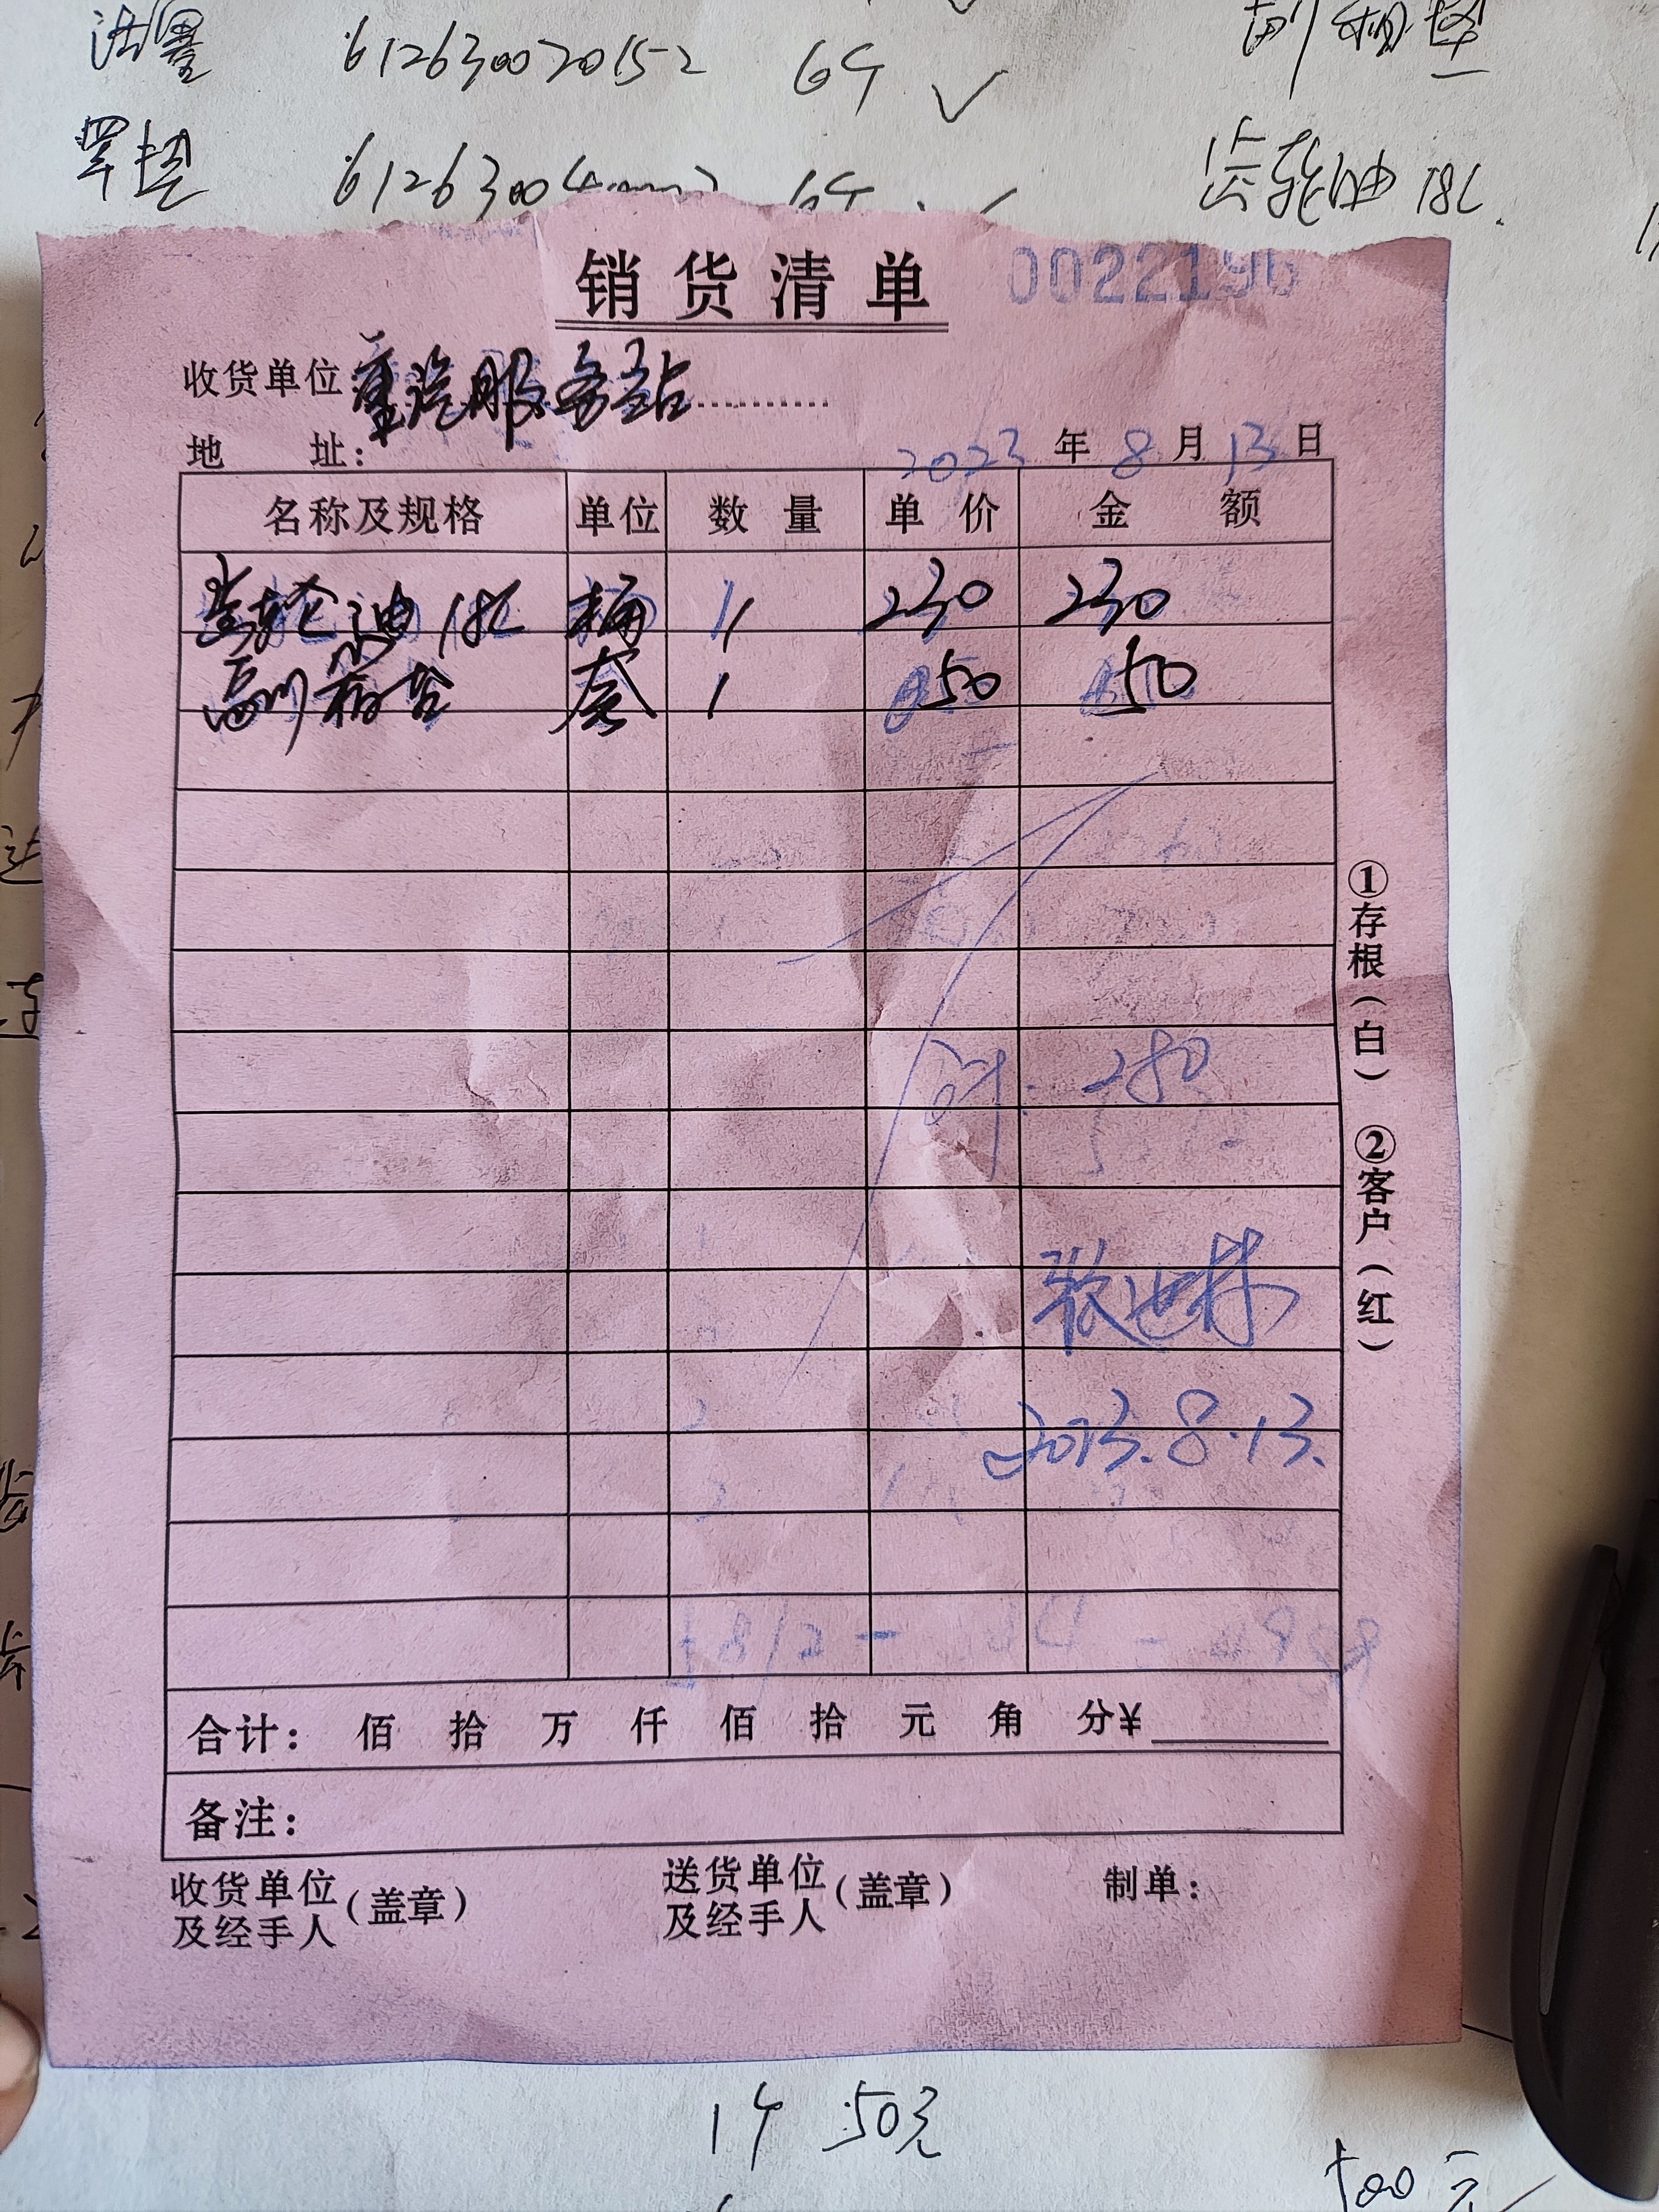 活塞 612630020152 6个 ✓
副箱垫
罩垫 6126300 6个
齿轮油 18L
销货清单 0022196
收货单位:重汽服务站
地 址: 2023 年 8 月 13 日
名称及规格 单位 数量 单价 金额
齿轮油 18L 桶 1 230 230
副箱垫 套 1 50 50
计. 280
张世林
2023.8.13.
合计: 佰 拾 万 仟 佰 拾 元 角 分¥
备注:
收货单位及经手人(盖章) 送货单位及经手人(盖章) 制单:
①存根(白) ②客户(红)
1个 50元
500元